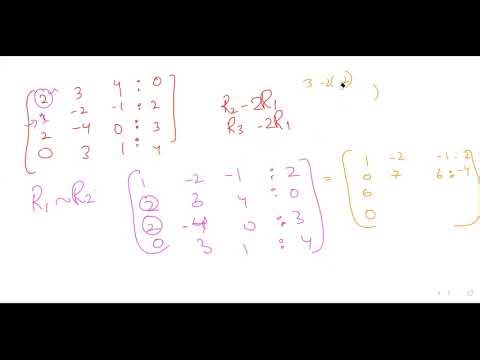 2 3 4 : 0
1 -2 -1 : 2
2 -4 0 : 3
0 3 1 : 4
R2 - 2R1
R3 - 2R1
3 - 2(-2)
)
R1 ~ R2
1 -2 -1 : 2
2 3 4 : 0
2 -4 0 : 3
0 3 1 : 4
=
1 -2 -1 : 2
0 7 6 : -4
0
0